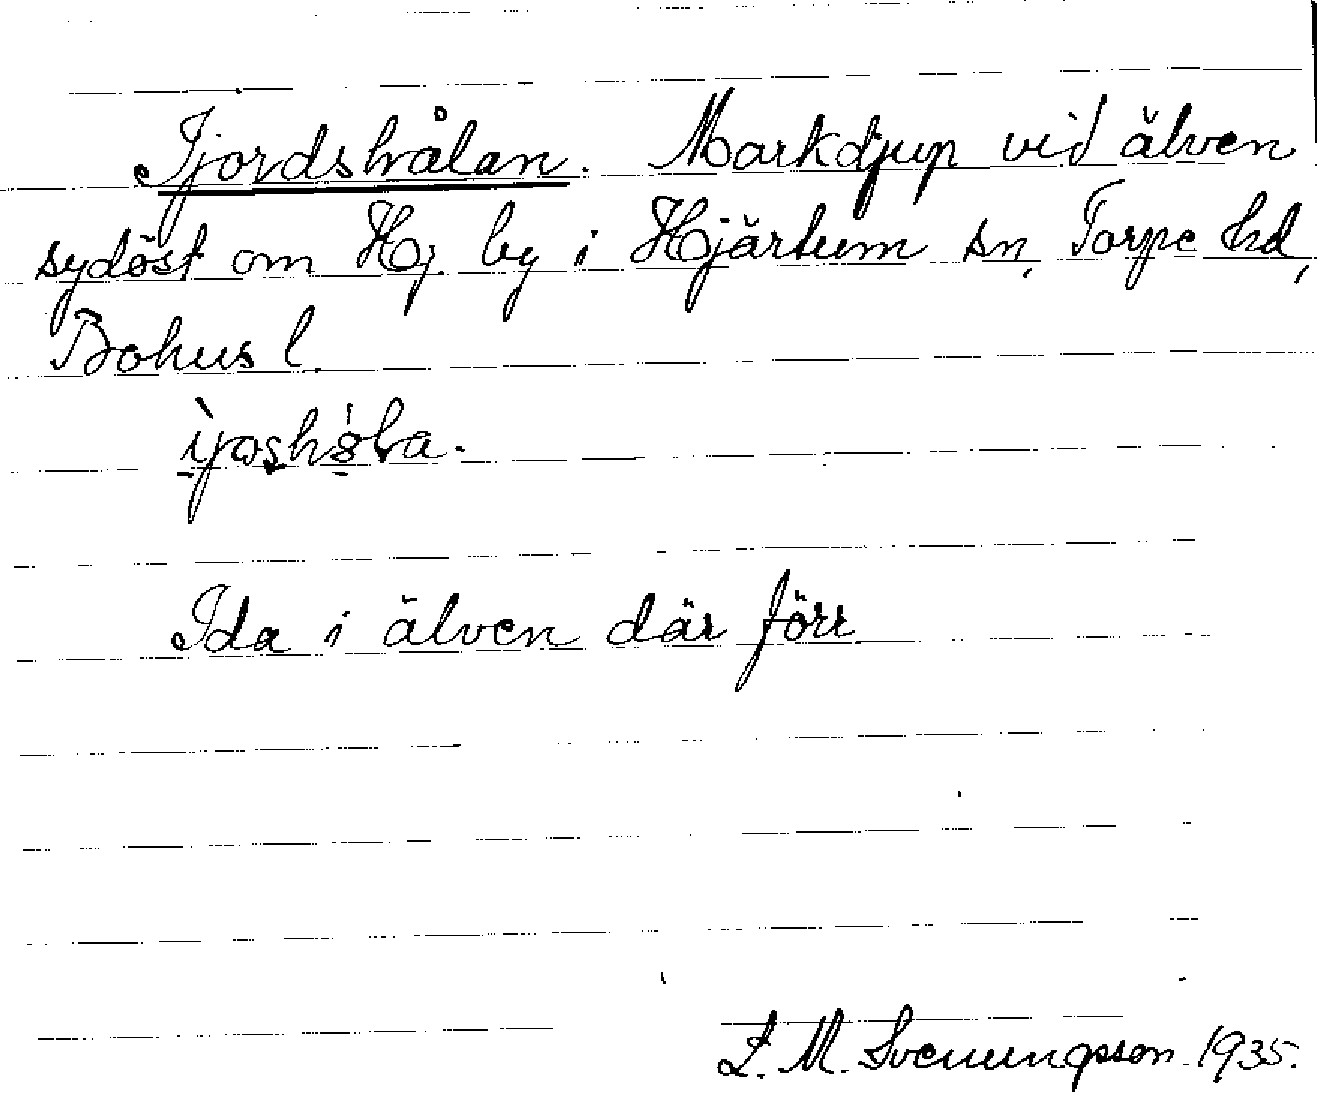 Ijordshålan. Markdjup vid älven
sydöst om Hj. by i Hjärtum sn, Torpe hd,
Bohus l.
Ida i älven där förr
L. M. Svenungsson 1935.